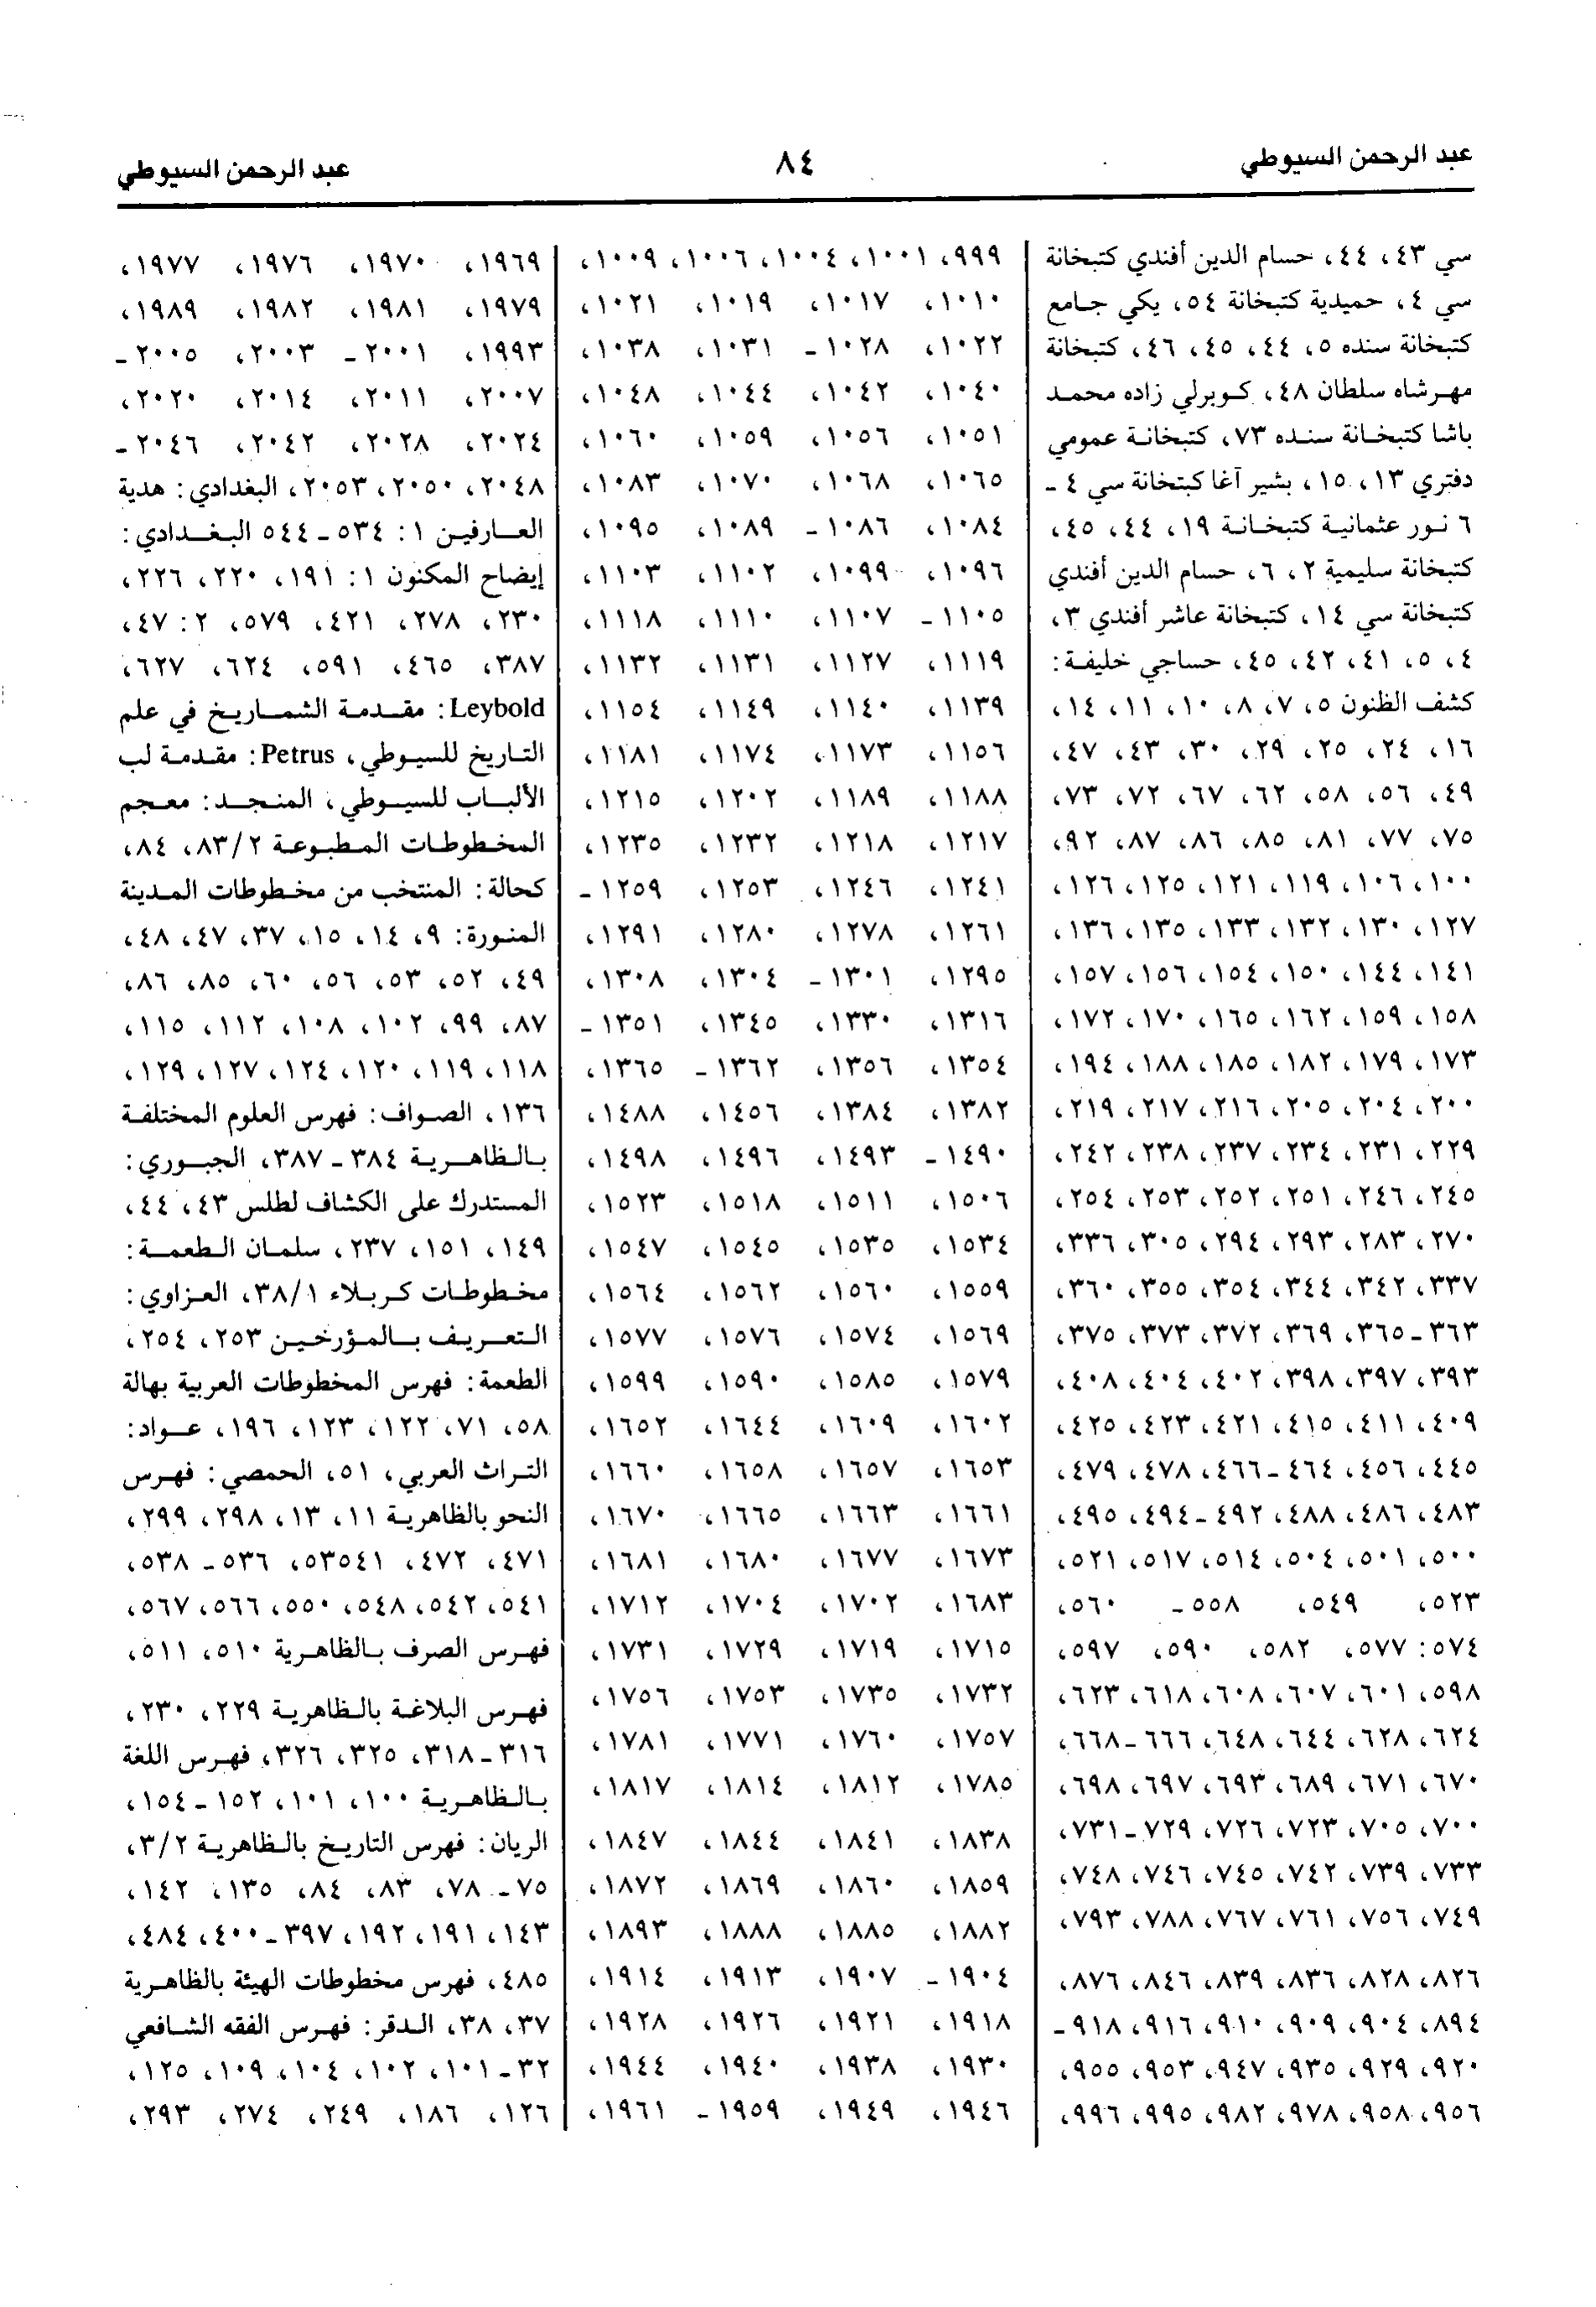 عبد الرحمن السيوطي
٨٤
عبد الرحمن السيوطي
سي ٤٣، ٤٤، حسام الدين أفندي كتبخانة
سي ٤، حميدية كتبخانة ٥٤، يكي جامع
كتبخانة سنده ٥، ٤٤، ٤٥، ٤٦، كتبخانة
مهرشاه سلطان ٤٨، كوبرلي زاده محمد
باشا كتبخانة سنده ٧٣، كتبخانة عمومي
دفتري ١٣، ١٥، بشير آغا كبتخانة سي ٤ -
٦ نور عثمانية كتبخانة ١٩، ٤٤، ٤٥،
كتبخانة سليمية ٢، ٦، حسام الدين أفندي
كتبخانة سي ١٤، كتبخانة عاشر أفندي ٣،
٤، ٥، ٤١، ٤٢، ٤٥، حساجي خليفة:
كشف الظنون ٥، ٧، ٨، ١٠، ١١، ١٤،
١٦، ٢٤، ٢٥، ٢٩، ٣٠، ٤٣، ٤٧،
٤٩، ٥٦، ٥٨، ٦٢، ٦٧، ٧٢، ٧٣،
٧٥، ٧٧، ٨١، ٨٥، ٨٦، ٨٧، ٩٢،
١٠٠، ١٠٦، ١١٩، ١٢١، ١٢٥، ١٢٦،
١٢٧، ١٣٠، ١٣٢، ١٣٣، ١٣٥، ١٣٦،
١٤١، ١٤٤، ١٥٠، ١٥٤، ١٥٦، ١٥٧،
١٥٨، ١٥٩، ١٦٢، ١٦٥، ١٧٠، ١٧٢،
١٧٣، ١٧٩، ١٨٢، ١٨٥، ١٨٨، ١٩٤،
٢٠٠، ٢٠٤، ٢٠٥، ٢١٦، ٢١٧، ٢١٩،
٢٢٩، ٢٣١، ٢٣٤، ٢٣٧، ٢٣٨، ٢٤٢،
٢٤٥، ٢٤٦، ٢٥١، ٢٥٢، ٢٥٣، ٢٥٤،
٢٧٠، ٢٨٣، ٢٩٣، ٢٩٤، ٣٠٥، ٣٣٦،
٣٣٧، ٣٤٢، ٣٤٤، ٣٥٤، ٣٥٥، ٣٦٠،
٣٦٣ - ٣٦٥، ٣٦٩، ٣٧٢، ٣٧٣، ٣٧٥،
٣٩٣، ٣٩٧، ٣٩٨، ٤٠٢، ٤٠٤، ٤٠٨،
٤٠٩، ٤١١، ٤١٥، ٤٢١، ٤٢٣، ٤٢٥،
٤٤٥، ٤٥٦، ٤٦٤ - ٤٦٦، ٤٧٨، ٤٧٩،
٤٨٣، ٤٨٦، ٤٨٨، ٤٩٢ - ٤٩٤، ٤٩٥،
٥٠٠، ٥٠١، ٥٠٤، ٥١٤، ٥١٧، ٥٢١،
٥٢٣، ٥٤٩، ٥٥٨ - ٥٦٠،
٥٧٤: ٥٧٧، ٥٨٢، ٥٩٠، ٥٩٧،
٥٩٨، ٦٠١، ٦٠٧، ٦٠٨، ٦١٨، ٦٢٣،
٦٢٤، ٦٢٨، ٦٤٤، ٦٤٨، ٦٦٦ - ٦٦٨،
٦٧٠، ٦٧١، ٦٨٩، ٦٩٣، ٦٩٧، ٦٩٨،
٧٠٠، ٧٠٥، ٧٢٣، ٧٢٦، ٧٢٩ - ٧٣١،
٧٣٣، ٧٣٩، ٧٤٢، ٧٤٥، ٧٤٦، ٧٤٨،
٧٤٩، ٧٥٦، ٧٦١، ٧٦٧، ٧٨٨، ٧٩٣،
٨٢٦، ٨٢٨، ٨٣٦، ٨٣٩، ٨٤٦، ٨٧٦،
٨٩٤، ٩٠٤، ٩٠٩، ٩١٠، ٩١٦، ٩١٨ -
٩٢٠، ٩٢٩، ٩٣٥، ٩٤٧، ٩٥٣، ٩٥٥،
٩٥٦، ٩٥٨، ٩٧٨، ٩٨٢، ٩٩٥، ٩٩٦،
٩٩٩، ١٠٠١، ١٠٠٤، ١٠٠٦، ١٠٠٩،
١٠١٠، ١٠١٧، ١٠١٩، ١٠٢١،
١٠٢٢، ١٠٢٨ - ١٠٣١، ١٠٣٨،
١٠٤٠، ١٠٤٢، ١٠٤٤، ١٠٤٨،
١٠٥١، ١٠٥٦، ١٠٥٩، ١٠٦٠،
١٠٦٥، ١٠٦٨، ١٠٧٠، ١٠٨٣،
١٠٨٤، ١٠٨٦ - ١٠٨٩، ١٠٩٥،
١٠٩٦، ١٠٩٩، ١١٠٢، ١١٠٣،
١١٠٥ - ١١٠٧، ١١١٠، ١١١٨،
١١١٩، ١١٢٧، ١١٣١، ١١٣٢،
١١٣٩، ١١٤٠، ١١٤٩، ١١٥٤،
١١٥٦، ١١٧٣، ١١٧٤، ١١٨١،
١١٨٨، ١١٨٩، ١٢٠٢، ١٢١٥،
١٢١٧، ١٢١٨، ١٢٣٢، ١٢٣٥،
١٢٤١، ١٢٤٦، ١٢٥٣، ١٢٥٩ -
١٢٦١، ١٢٧٨، ١٢٨٠، ١٢٩١،
١٢٩٥، ١٣٠١ - ١٣٠٤، ١٣٠٨،
١٣١٦، ١٣٣٠، ١٣٤٥، ١٣٥١ -
١٣٥٤، ١٣٥٦، ١٣٦٢ - ١٣٦٥،
١٣٨٢، ١٣٨٤، ١٤٥٦، ١٤٨٨،
١٤٩٠ - ١٤٩٣، ١٤٩٦، ١٤٩٨،
١٥٠٦، ١٥١١، ١٥١٨، ١٥٢٣،
١٥٣٤، ١٥٣٥، ١٥٤٥، ١٥٤٧،
١٥٥٩، ١٥٦٠، ١٥٦٢، ١٥٦٤،
١٥٦٩، ١٥٧٤، ١٥٧٦، ١٥٧٧،
١٥٧٩، ١٥٨٥، ١٥٩٠، ١٥٩٩،
١٦٠٢، ١٦٠٩، ١٦٤٤، ١٦٥٢،
١٦٥٣، ١٦٥٧، ١٦٥٨، ١٦٦٠،
١٦٦١، ١٦٦٣، ١٦٦٥، ١٦٧٠،
١٦٧٣، ١٦٧٧، ١٦٨٠، ١٦٨١،
١٦٨٣، ١٧٠٢، ١٧٠٤، ١٧١٢،
١٧١٥، ١٧١٩، ١٧٢٩، ١٧٣١،
١٧٣٢، ١٧٣٥، ١٧٥٣، ١٧٥٦،
١٧٥٧، ١٧٦٠، ١٧٧١، ١٧٨١،
١٧٨٥، ١٨١٢، ١٨١٤، ١٨١٧،
١٨٣٨، ١٨٤١، ١٨٤٤، ١٨٤٧،
١٨٥٩، ١٨٦٠، ١٨٦٩، ١٨٧٢،
١٨٨٢، ١٨٨٥، ١٨٨٨، ١٨٩٣،
١٩٠٤ - ١٩٠٧، ١٩١٣، ١٩١٤،
١٩١٨، ١٩٢١، ١٩٢٦، ١٩٢٨،
١٩٣٠، ١٩٣٨، ١٩٤٠، ١٩٤٤،
١٩٤٦، ١٩٤٩، ١٩٥٩ - ١٩٦١،
١٩٦٩، ١٩٧٠، ١٩٧٦، ١٩٧٧،
١٩٧٩، ١٩٨١، ١٩٨٢، ١٩٨٩،
١٩٩٣، ٢٠٠١ - ٢٠٠٣، ٢٠٠٥ -
٢٠٠٧، ٢٠١١، ٢٠١٤، ٢٠٢٠،
٢٠٢٤، ٢٠٢٨، ٢٠٤٢، ٢٠٤٦ -
٢٠٤٨، ٢٠٥٠، ٢٠٥٣، البغدادي: هدية
العارفين ١: ٥٣٤ - ٥٤٤ البغدادي:
إيضاح المكنون ١: ١٩١، ٢٢٠، ٢٢٦،
٢٣٠، ٢٧٨، ٤٢١، ٥٧٩، ٢: ٤٧،
٣٨٧، ٤٦٥، ٥٩١، ٦٢٤، ٦٢٧،
Leybold: مقدمة الشماريخ في علم
التاريخ للسيوطي، Petrus: مقدمة لب
الألباب للسيوطي، المنجد: معجم
المخطوطات المطبوعة ٢/ ٨٣، ٨٤،
كحالة: المنتخب من مخطوطات المدينة
المنورة: ٩، ١٤، ١٥، ٣٧، ٤٧، ٤٨،
٤٩، ٥٢، ٥٣، ٥٦، ٦٠، ٨٥، ٨٦،
٨٧، ٩٩، ١٠٢، ١٠٨، ١١٢، ١١٥،
١١٨، ١١٩، ١٢٠، ١٢٤، ١٢٧، ١٢٩،
١٣٦، الصواف: فهرس العلوم المختلفة
بالظاهرية ٣٨٤ - ٣٨٧، الجبوري:
المستدرك على الكشاف لطلس ٤٣، ٤٤،
١٤٩، ١٥١، ٢٣٧، سلمان الطعمة:
مخطوطات كربلاء ١/ ٣٨، العزاوي:
التعريف بالمؤرخين ٢٥٣، ٢٥٤،
الطعمة: فهرس المخطوطات العربية بهالة
٥٨، ٧١، ١٢٢، ١٢٣، ١٩٦، عواد:
التراث العربي، ٥١، الحمصي: فهرس
النحو بالظاهرية ١١، ١٣، ٢٩٨، ٢٩٩،
٤٧١، ٤٧٢، ٥٣٥٤١، ٥٣٦ - ٥٣٨،
٥٤١، ٥٤٢، ٥٤٨، ٥٥٠، ٥٦٦، ٥٦٧،
فهرس الصرف بالظاهرية ٥١٠، ٥١١،
فهرس البلاغة بالظاهرية ٢٢٩، ٢٣٠،
٣١٦ - ٣١٨، ٣٢٥، ٣٢٦، فهرس اللغة
بالظاهرية ١٠٠، ١٠١، ١٥٢ - ١٥٤،
الريان: فهرس التاريخ بالظاهرية ٢/ ٣،
٧٥ - ٧٨، ٨٣، ٨٤، ١٣٥، ١٤٢،
١٤٣، ١٩١، ١٩٢، ٣٩٧ - ٤٠٠، ٤٨٤،
٤٨٥، فهرس مخطوطات الهيئة بالظاهرية
٣٧، ٣٨، الدقر: فهرس الفقه الشافعي
٣٢ - ١٠١، ١٠٢، ١٠٤، ١٠٩، ١٢٥،
١٢٦، ١٨٦، ٢٤٩، ٢٧٤، ٢٩٣،